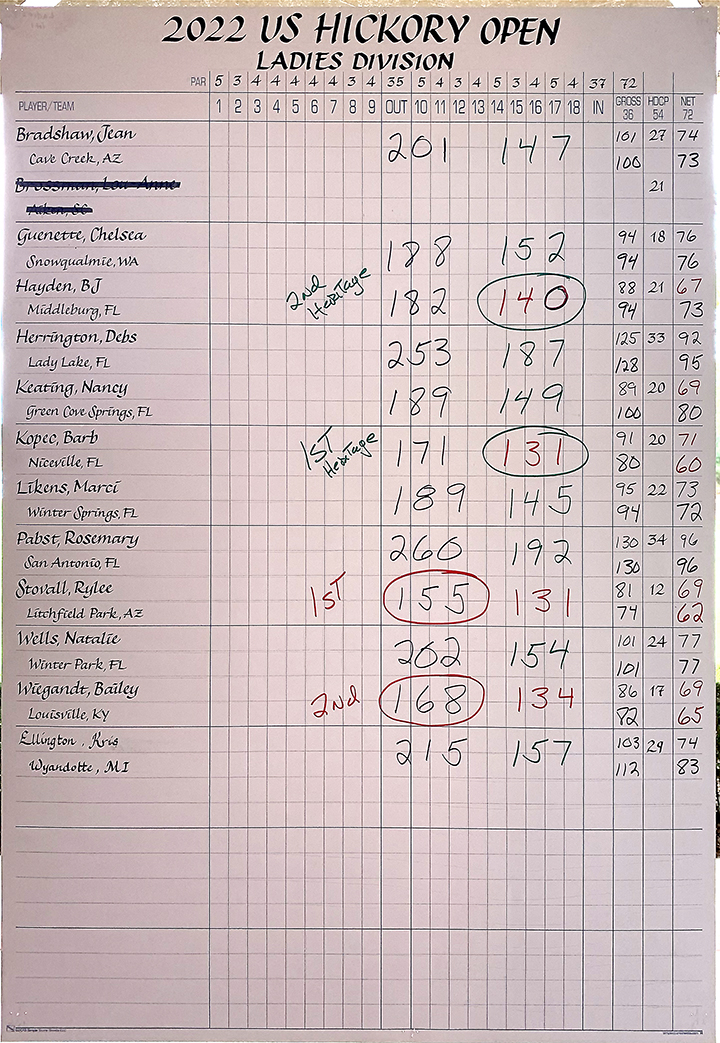 2022 US HICKORY OPEN
LADIES DIVISION
PAR 5 3 4 4 4 4 4 3 4 35 5 4 4 3 5 3 4 5 4 37 72
PLAYER/TEAM 1 2 3 4 5 6 7 8 9 OUT 10 11 12 13 14 15 16 17 18 IN GROSS 36 HDCP 54 NET 72
Bradshaw, Jean 201 147 101 27 74
Cave Creek, AZ 100 73
Brossman, Lou-Anne 21
Aiken, SC
Guenette, Chelsea 188 152 94 18 76
Snowqualmie, WA 94 76
Hayden, BJ 2nd Heritage 182 140 88 21 67
Middleburg, FL 94 73
Herrington, Debs 253 187 125 33 92
Lady Lake, FL 128 95
Keating, Nancy 189 149 89 20 69
Green Cove Springs, FL 100 80
Kopec, Barb 1ST Heritage 171 131 91 20 71
Niceville, FL 80 60
Likens, Marci 189 145 95 22 73
Winter Springs, FL 94 72
Pabst, Rosemary 260 192 130 34 96
San Antonio, FL 130 96
Stovall, Rylee 1ST 155 131 81 12 69
Litchfield Park, AZ 74 62
Wells, Natalie 202 154 101 24 77
Winter Park, FL 101 77
Wiegandt, Bailey 2nd 168 134 86 17 69
Louisville, KY 82 65
Ellington, Kris 215 157 103 29 74
Wyandotte, MI 112 83